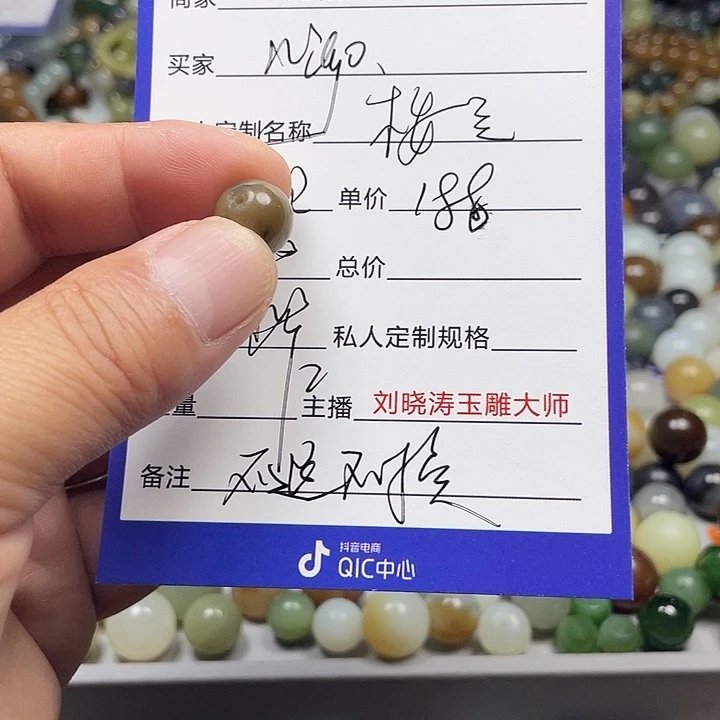 商家
买家 Nigo、
定制名称
单价 188
总价
私人定制规格
量 主播 刘晓涛玉雕大师
备注 不退不换
抖音电商
QIC中心